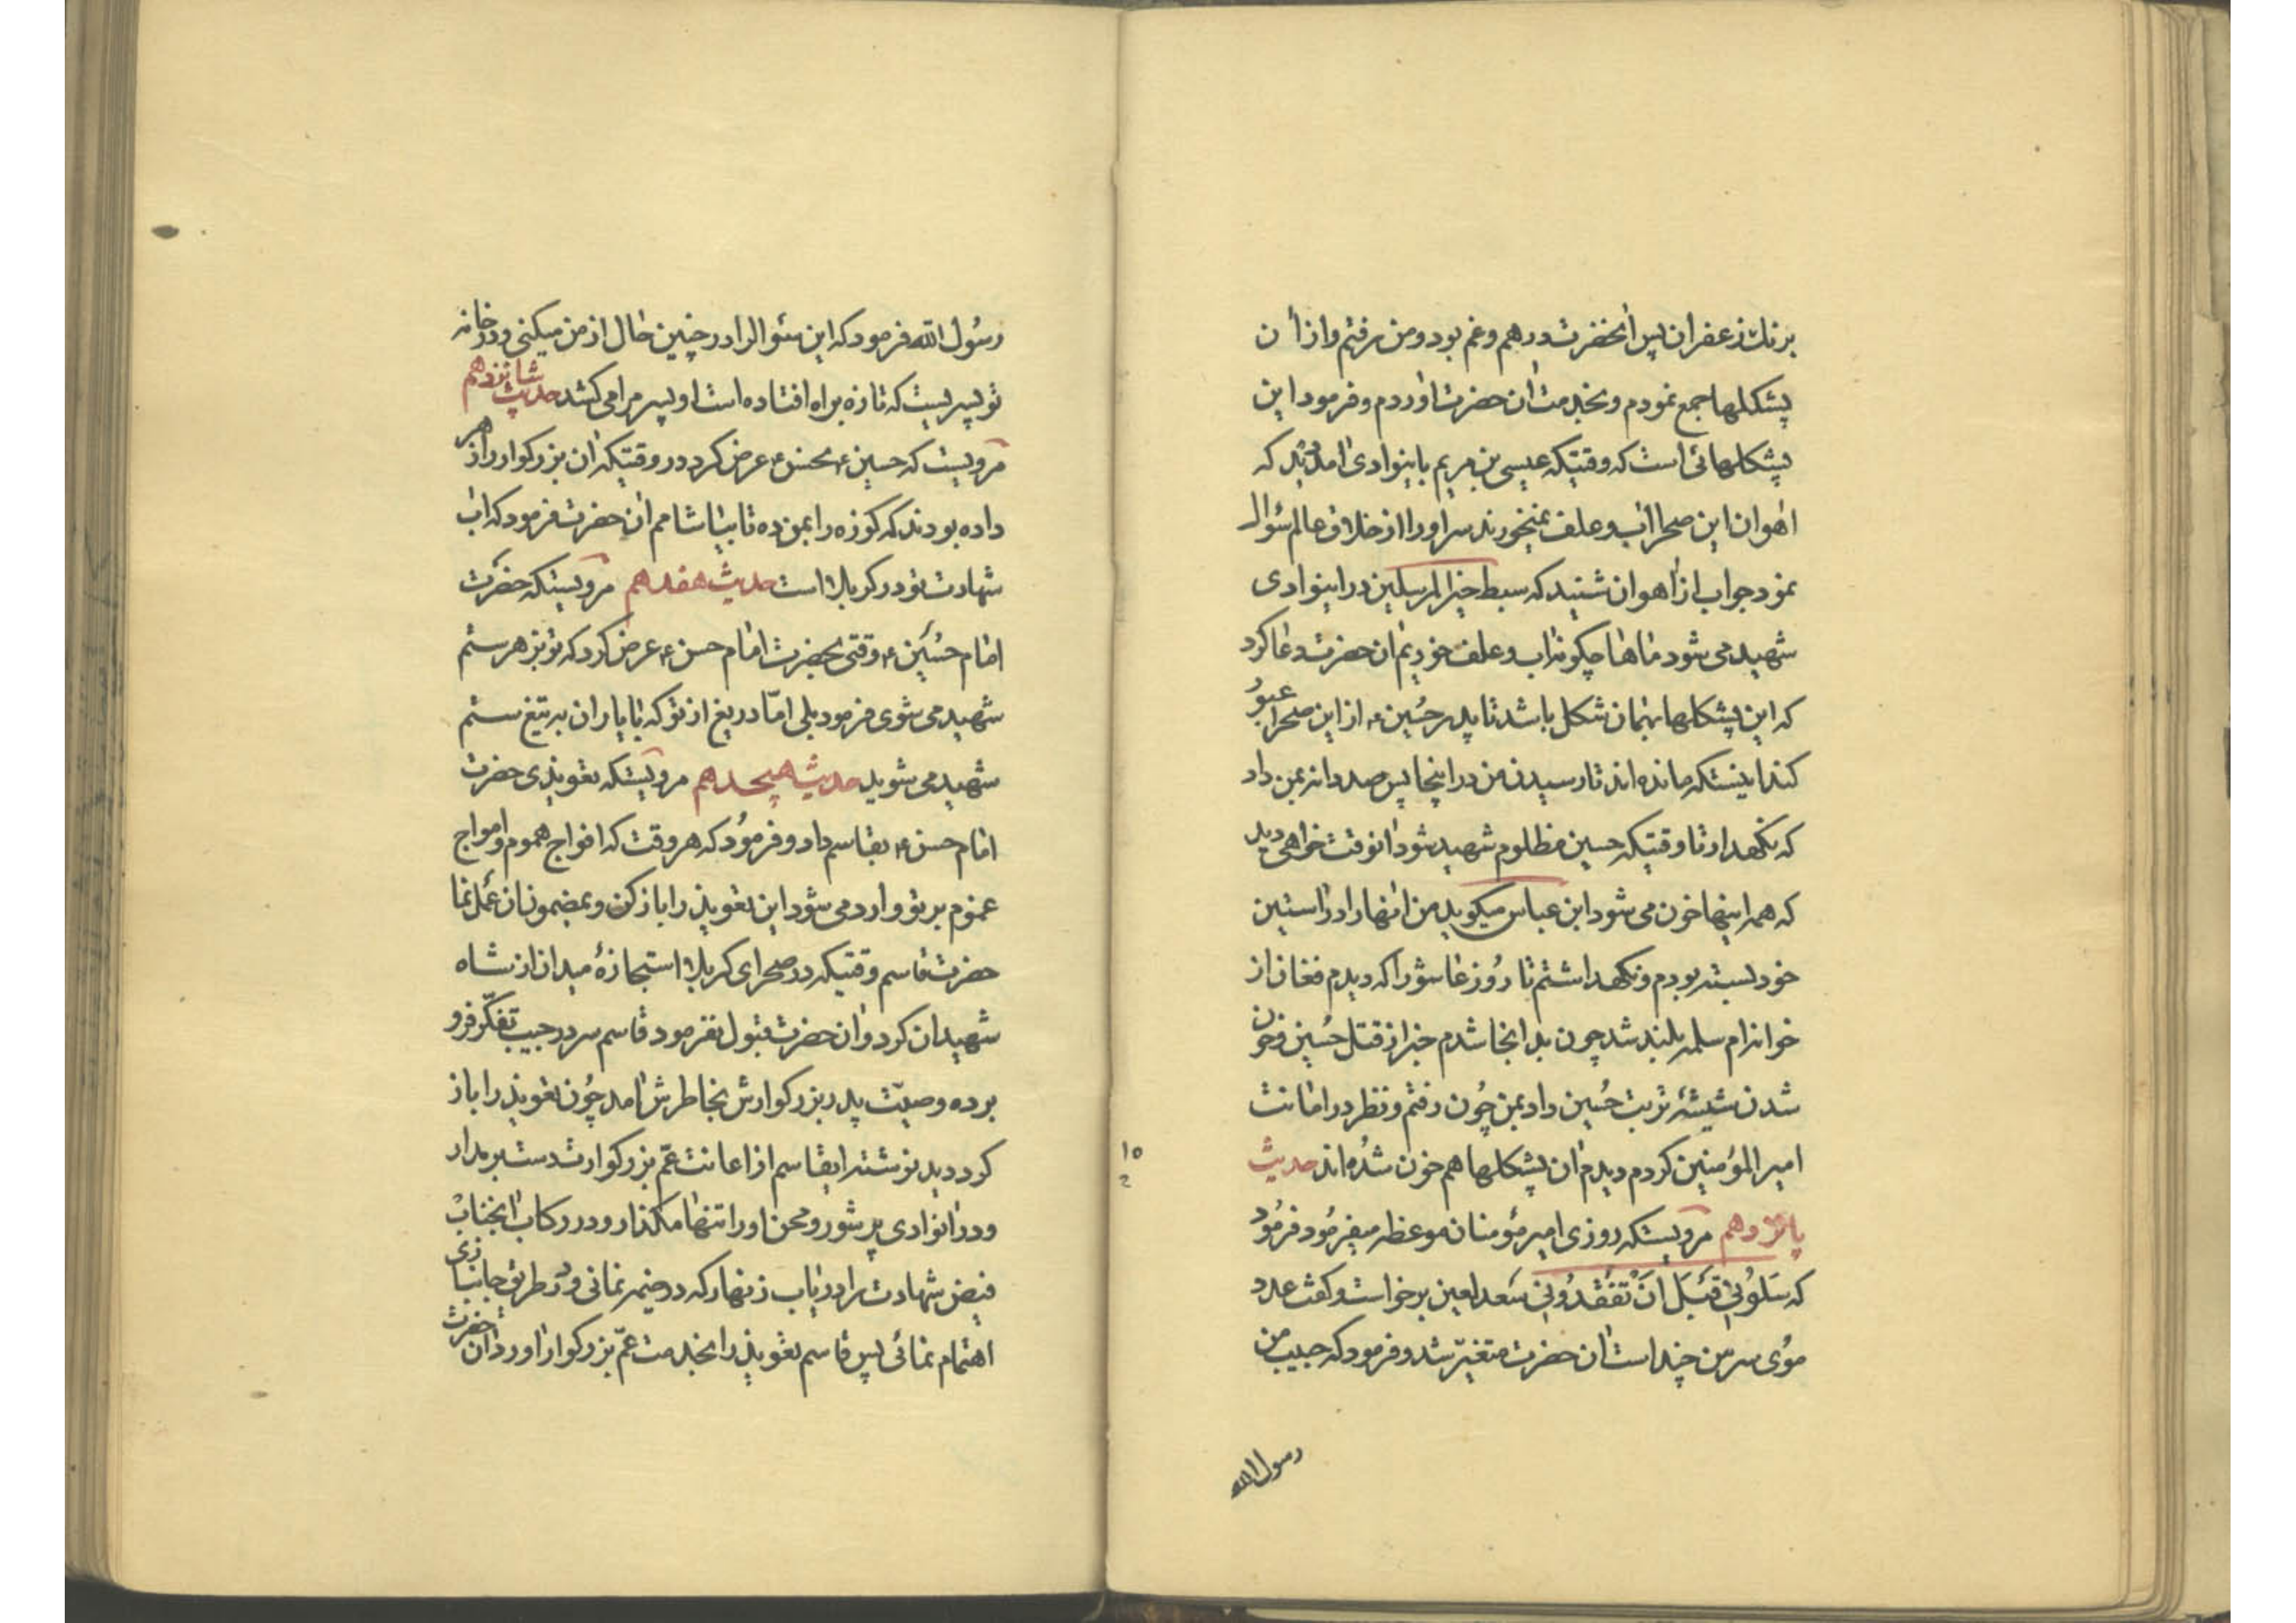 برنك زعفران پس آنحضرت درهم و غم بود و من برفتم و از آن
پشكلها جمع نمودم و بخدمت آن حضرت آوردم و فرمود این
پشكلهائی است كه وقتیكه عیسی بن مریم باینوادی آمد دید كه
آهوان این صحرا آب و علف نمیخورند سر او را از خلاق عالم سؤال
نمود جواب از آهوان شنید كه سبط خیر المرسلین در اینوادی
شهید می شود ماها چكونه آب و علف خوریم آن حضرت دعا كرد
كه این پشكلها بهمان شكل باشد تا پدر حُسین ٤ از این صحرا عبور
كند اینستكه مانده اند تا رسیدن من در اینجا پس صد دانه بمن داد
كه نكهدار تا وقتیكه حسین مظلوم شهید شود آنوقت خواهی دید
كه همه اینها خون می شود ابن عباس میكوید من آنها را در آستین
خود بسته بودم و نكهداشتم تا رُوز عاشورا كه دیدم فغان از
خوانه ام سلمه بلند شد چون بدانجا شدم خبر از قتل حُسین و خون
شدن شیشهٔ تربت حُسین داد بمن چُون رفتم و نظر در امانت
امیر المؤمنین كردم دیدم آن پشكلها هم خون شدُه اند حدیث
پانزدهم مرویستكه روزی امیر مؤمنان موعظه میفرمُود فرمُود
كه سَلُونی قَبَلَ اَنْ تَفْقِدُونی سَعد لعین برخواست و كفت عدد
موُی سر من چند است آن حضرت متغیّر شد و فرمود كه حبیب من
رسول الله
١٥
٢
رسُول الله فرمود كه این سئوال را در چنین حال از من میكنی و در خانه
تو پسریست كه تازه براه افتاده است او پسر مرا می كشد حدیث شانزدهم
مرویست كه حسین ٤ بحسن ٤ عرض كرد در وقتیكه آن بزركوار را زهر
داده بودند كه كوزه را بمن ده تا بیاشامم آن حضرت فرمود كه آب
شهادت تو در كربلا است حدیث هفدهم مرویستكه حضرت
امام حُسَین ٤ وقتی بحضرت امام حسن ٤ عرض كرد كه تو بزهر ستم
شهید می شوی فرمود بلی امّا دریغ از تو كه با یاران به تیغ ستم
شهید می شوید حدیث هیجدهم مرویستكه تعویذی حضرت
امام حسن ٤ بقاسم داد و فرموُد كه هر وقت كه افواج هموم و امواج
غموم بر تو وارد می شود این تعویذ را باز كن و بمضمون آن عمل نما
حضرت قاسم وقتیكه در صحرای كربلا استجازهٔ میدان از شاه
شهیدان كرد و آن حضرت قبول نفرمود قاسم سر در جیب تفكّر فرو
برده وصیّت پدر بزركوارش بخاطرش آمد چُون تعویذ را باز
كرد دید نوشته ایقاسم از اعانت عمّ بزركوارت دست بر مدار
و در آنوادی پر شور و محن او را تنها مكذار و در ركاب آنجناب
فیض شهادت را دریاب زنهار كه در خیمه نمانی و در طریق جانبازی
اهتمام نمائی پس قاسم تعویذ را بخدمت عمّ بزركوار آورد آن حضرت